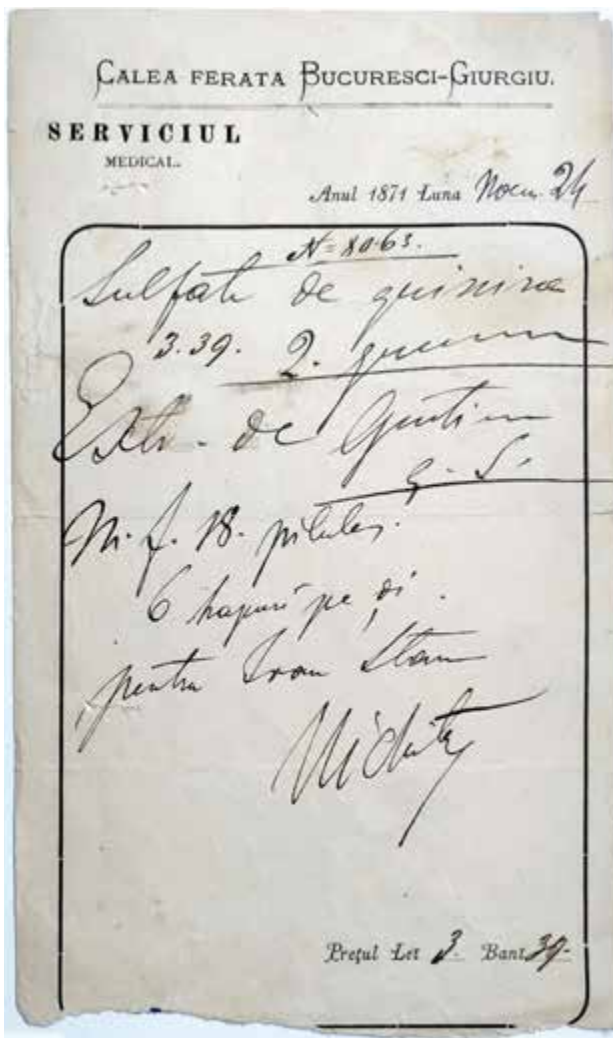 CALEA FERATA BUCURESCI-GIURGIU.
SERVICIUL
MEDICAL.
Anul 1871 Luna 24
Sulfate de quinine
3.39. 2.
Extr. de
M. f. 18. pilules.
6 hapuri pe di.
pentru Ioan Stan
Prețul Lei 3. Bani 39.